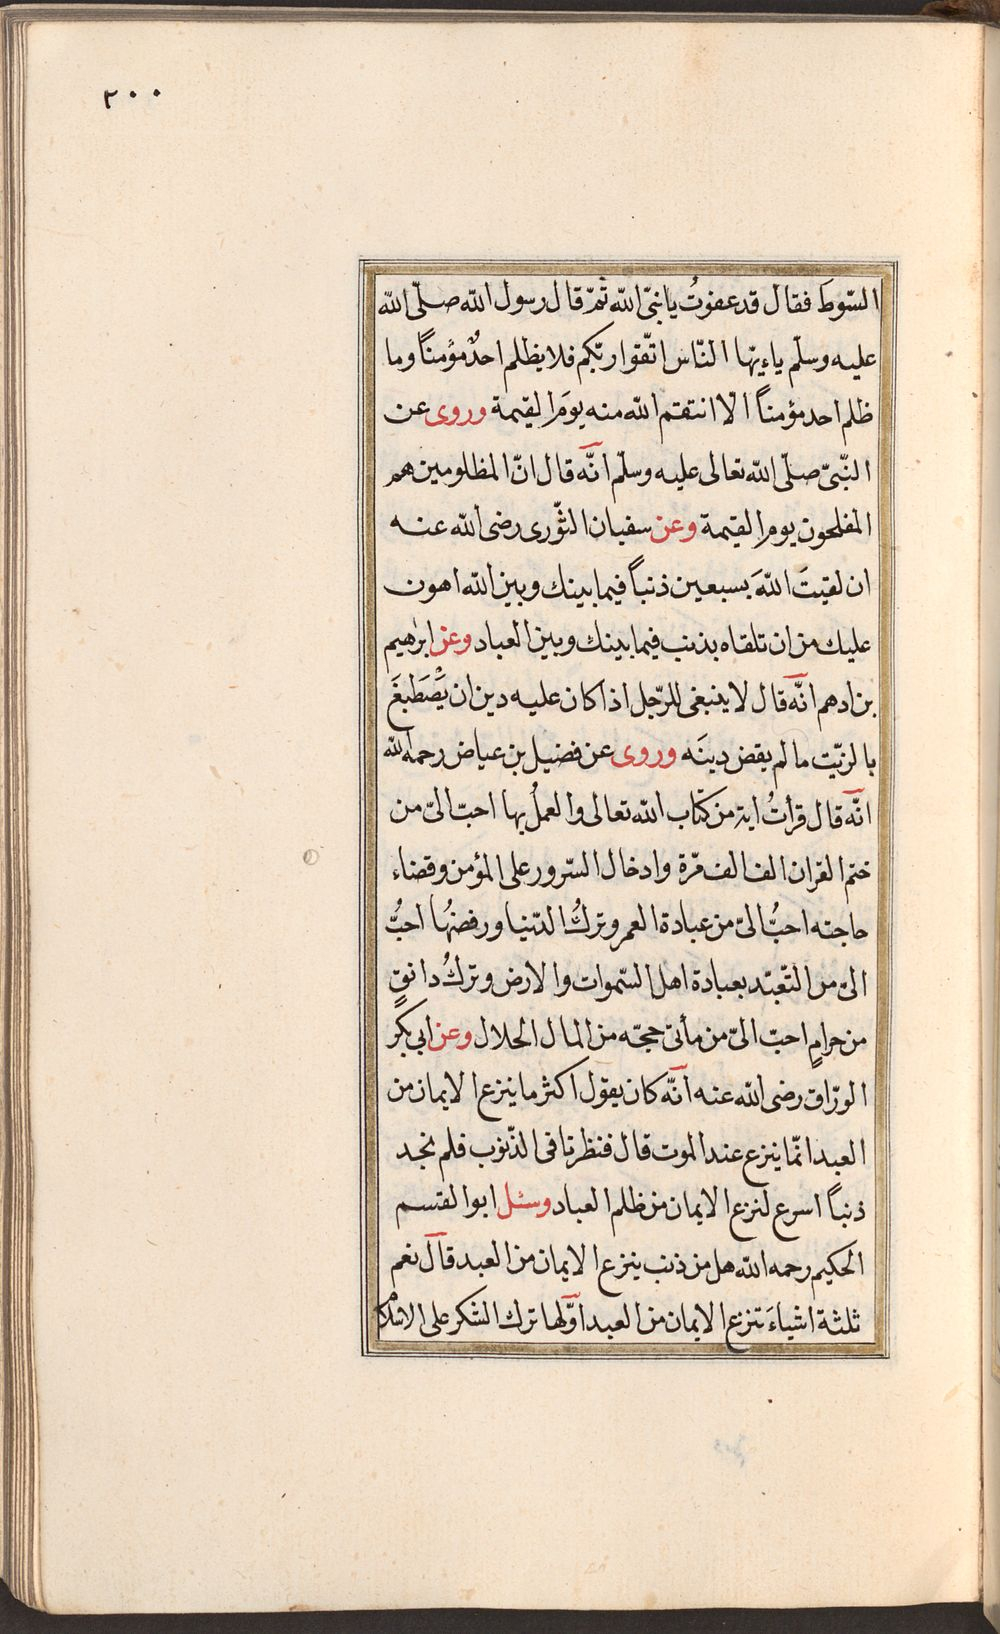 ٢٠٠
السّوط فقال قد عفوتُ يا نبىّ الله ثمّ قال رسول الله صلّى الله
عليه وسلّم ياءيّها النّاس اتّقوا ربّكم فلا يظلم احدٌ مؤمناً وما
ظلم احد مؤمناً الا انتقم الله منه يومَ القيمة وروى عن
النّبىّ صلّى الله تعالى عليه وسلّم انّه قال انّ المظلومين هم
المفلحون يوم القيمة وعن سفيان الثّورى رضى الله عنه
ان لقيتَ اللهَ بسبعين ذنباً فيما بينك وبين الله اهون
عليك من ان تلقاه بذنب فيما بينك وبين العباد وعن ابرٰهيم
بن ادهم انّه قال لا ينبغى للرّجل اذا كان عليه دين ان يَصْطَبغَ
بالزيّت ما لم يقض دينَه وروى عن فضيل بن عياض رحمه الله
انّه قال قرأتُ اية من كتاب الله تعالى والعملُ بها احبّ الىّ من
ختم القران الف الف مرّة وادخال السّرور على المؤمن وقضاء
حاجته احبُّ الىّ من عبادة العمر وتركُ الدّنيا ورفضُها احبُّ
الىّ من التّعبّد بعبادة اهل السّموات والارض وتركُ دانقٍ
من حرامٍ احبّ الىّ من مأتى حجّه من المال الحلال وعن ابى بكر
الورّاق رضى الله عنه انّه كان يقول اكثر ما ينزع الايمان من
العبد انّما ينزع عند الموت قال فنظرنا فى الذّنوب فلم نجد
ذنباً اسرع لنزع الايمان من ظلم العباد وسئل ابو القسم
الحكيم رحمه الله هل من ذنب ينزع الايمان من العبد قال نعم
ثلثة اشياءَ تنزع الايمان من العبد اوّلها ترك الشكر على الاسلام